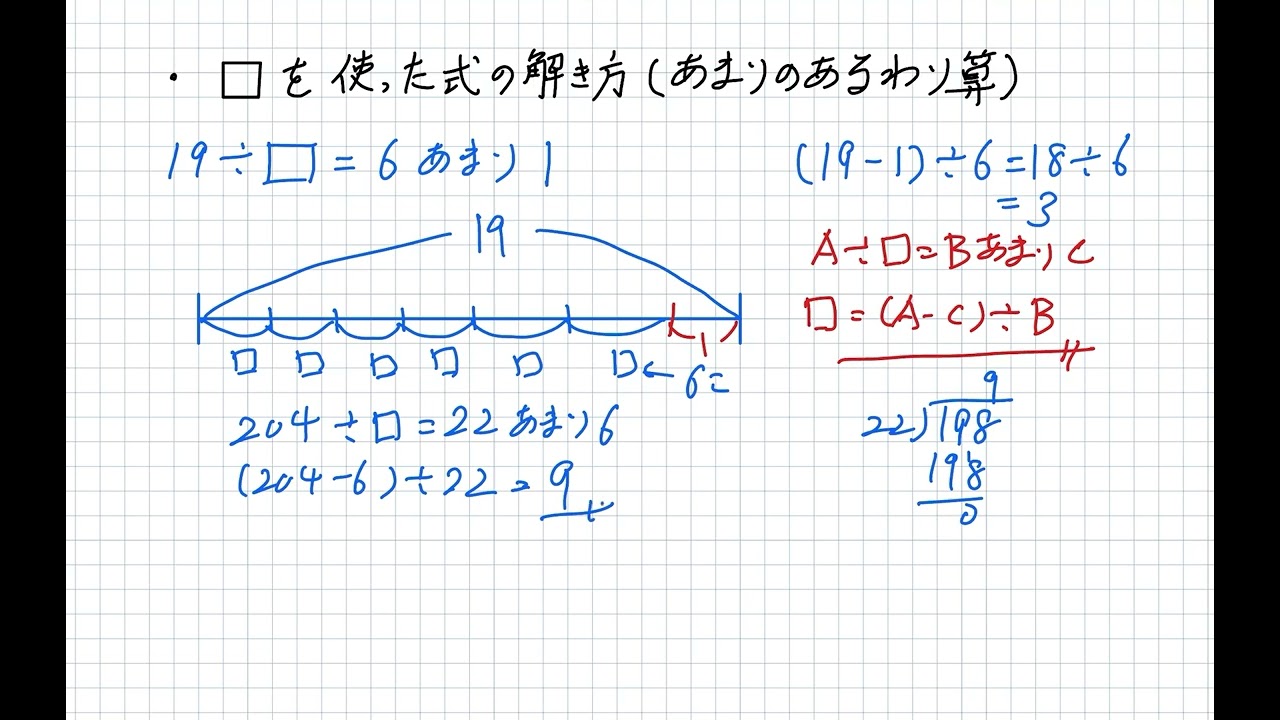 ・ □を使った式の解き方(あまりのあるわり算)
19÷□=6あまり1
19
1
□ □ □ □ □ □←6こ
204÷□=22あまり6
(204-6)÷22=9
(19-1)÷6=18÷6
=3
A÷□=BあまりC
□=(A-C)÷B
9
22)198
198
0